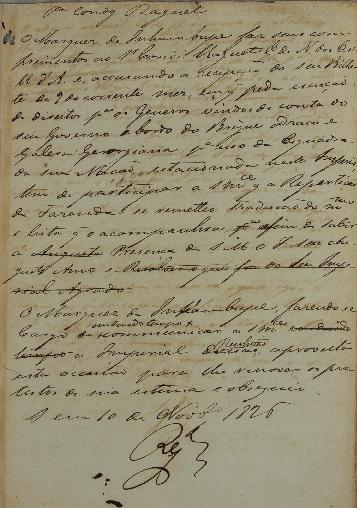 Condy Raguet
O Marquez de Inhambupe faz seus com-
primentos ao Snr. Condy Raguet E. de N. dos Est.
U. d'A. e, accusando a recepção do seu Bilhe-
te de 9 do corrente mez, em q pede isenção
de direitos pa os Generos vindos de conta do
seu Governo a bordo do Brigue
Galera Georgiana pa uso da Esquadra
da sua Nação, estacionada neste Imperio
tem de participar a S Mce q a Repartição
da Fazenda se remetteo traducção da
e lista q o acompanhou pa afim de subir
a Augusta Presença de S. M. O I. seu Au-
gusto Amo e
rial Agrado.
O Marquez de Inhambupe, fazendo-se
cargo de communicar a S Mce
a Imperial Decisão, aproveita
esta occasião para lhe renovar os pro-
testos de sua estima e obsequio.
em 10 de Novbro 1826